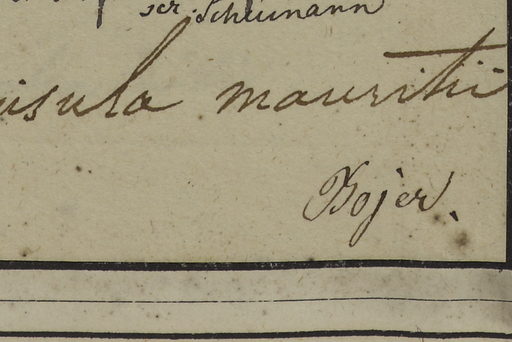 scr. Scheumann
insula mauritii
Bojer.